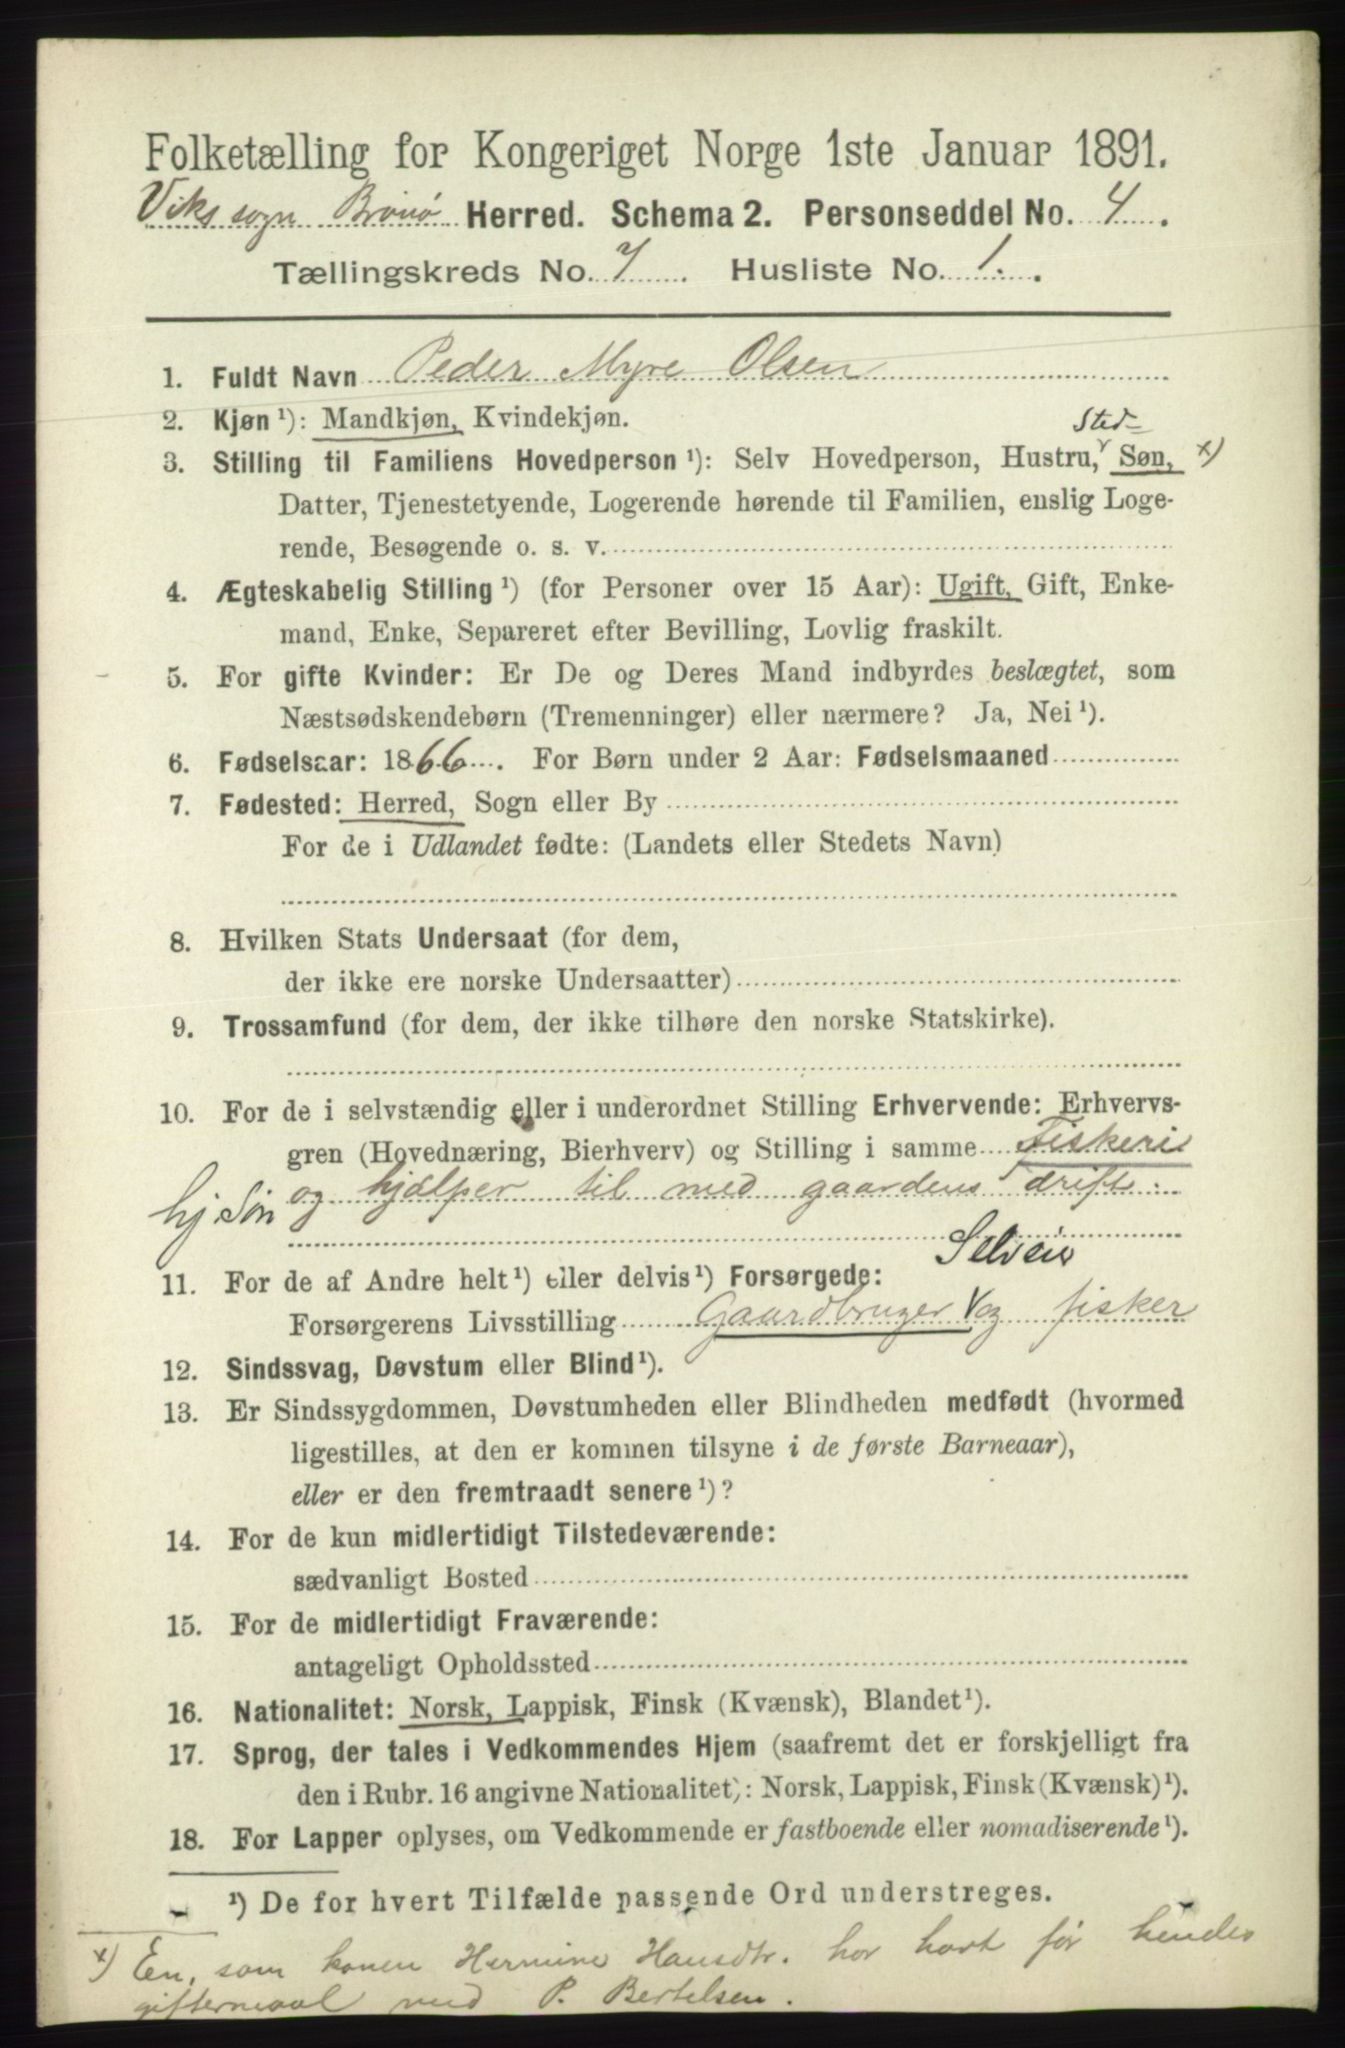 Folketælling for Kongeriget Norge 1ste Januar 1891.
Viks sogn Brønø Herred. Schema 2. Personseddel No. 4.
Tællingskreds No. 7. Husliste No. 1.
1. Fuldt Navn Peder Myre Olsen
2. Kjøn ¹): Mandkjøn, Kvindekjøn.
Sted-
3. Stilling til Familiens Hovedperson ¹): Selv Hovedperson, Hustru, Søn, x)
Datter, Tjenestetyende, Logerende hørende til Familien, enslig Loge-
rende, Besøgende o. s. v.
4. Ægteskabelig Stilling ¹) (for Personer over 15 Aar): Ugift, Gift, Enke-
mand, Enke, Separeret efter Bevilling, Lovlig fraskilt.
5. For gifte Kvinder: Er De og Deres Mand indbyrdes beslægtet, som
Næstsødskendebørn (Tremenninger) eller nærmere? Ja, Nei ¹).
6. Fødselsaar: 1866. For Børn under 2 Aar: Fødselsmaaned
7. Fødested: Herred, Sogn eller By
For de i Udlandet fødte: (Landets eller Stedets Navn)
8. Hvilken Stats Undersaat (for dem,
der ikke ere norske Undersaatter)
9. Trossamfund (for dem, der ikke tilhøre den norske Statskirke).
10. For de i selvstændig eller i underordnet Stilling Erhvervende: Erhvervs-
gren (Hovednæring, Bierhverv) og Stilling i samme Fiskeri
og hjælper til med gaardens drift.
hj. Søn
Selveier
11. For de af Andre helt ¹) eller delvis ¹) Forsørgede:
Forsørgerens Livsstilling Gaardbruger og fisker
12. Sindssvag, Døvstum eller Blind ¹).
13. Er Sindssygdommen, Døvstumheden eller Blindheden medfødt (hvormed
ligestilles, at den er kommen tilsyne i de første Barneaar),
eller er den fremtraadt senere ¹)?
14. For de kun midlertidigt Tilstedeværende:
sædvanligt Bosted
15. For de midlertidigt Fraværende:
antageligt Opholdssted
16. Nationalitet: Norsk, Lappisk, Finsk (Kvænsk), Blandet ¹).
17. Sprog, der tales i Vedkommendes Hjem (saafremt det er forskjelligt fra
den i Rubr. 16 angivne Nationalitet): Norsk, Lappisk, Finsk (Kvænsk) ¹).
18. For Lapper oplyses, om Vedkommende er fastboende eller nomadiserende ¹).
¹) De for hvert Tilfælde passende Ord understreges.
x) En, som konen Hermine Hansdtr. har havt før hendes
giftermaal med P. Bertelsen.